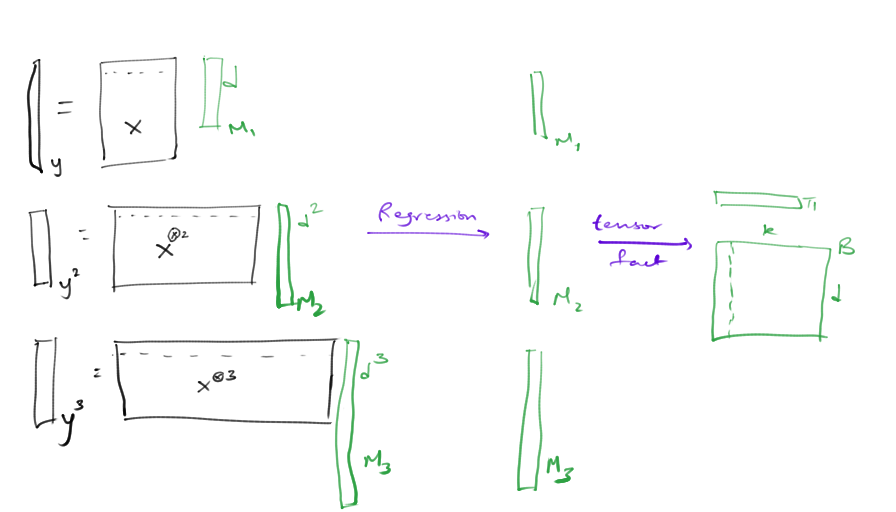 y = X d M₁
y² = X^⊗2 d² M₂
y³ = X^⊗3 d³ M₃
Regression
M₁
M₂
M₃
tensor
fact
π
k
B
d